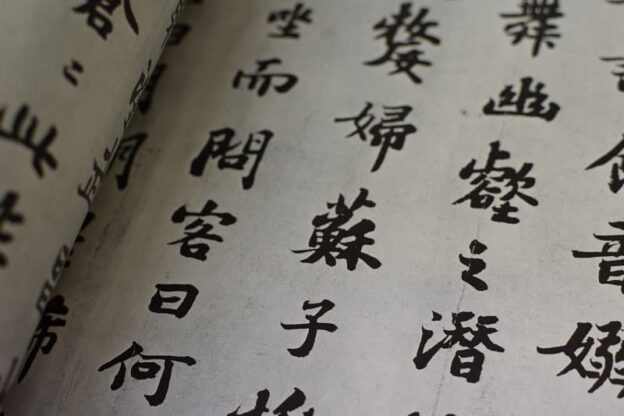 音嫋
舞幽壑之潛
嫠婦蘇子
坐而問客曰何